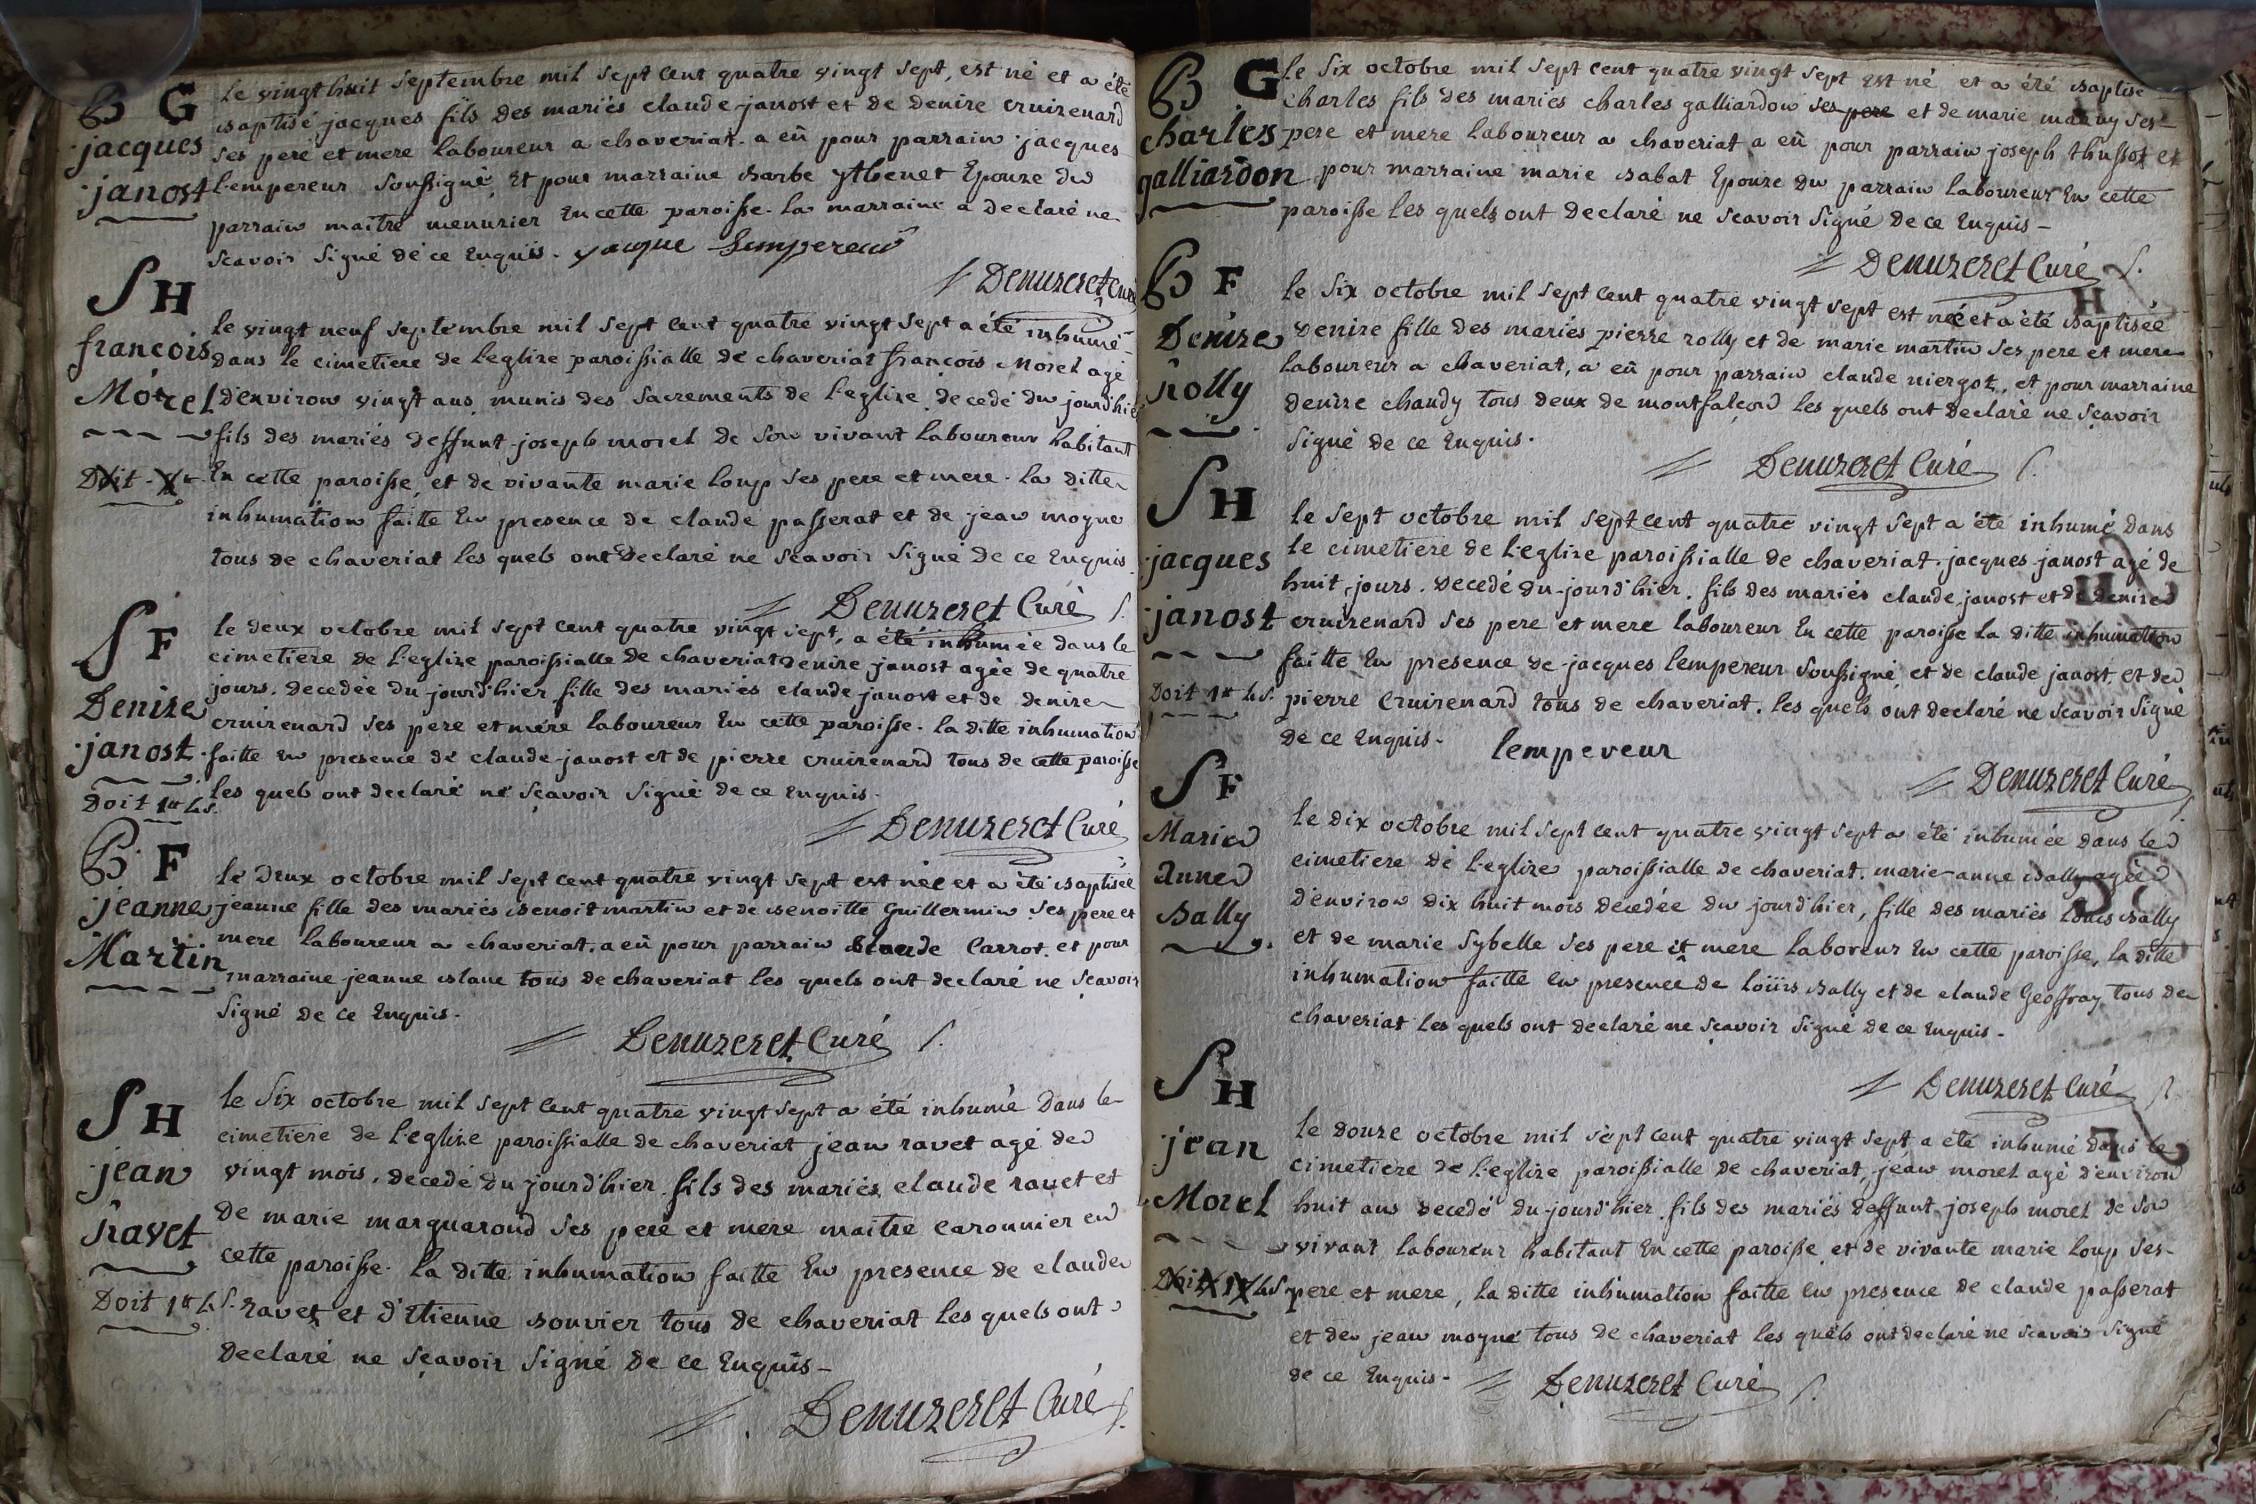 B G
jacques
janost
le vingt huit septembre mil sept cent quatre vingt sept, est né et a été
baptisé jacques fils des mariés claude janost et de denize cruizenard
ses pere et mere laboureur a chaveriat. a eû pour parrain jacques
l'empereur soussigné, Et pour marraine barbe ythenet Epouze du
parrain maitre menuzier En cette paroisse. la marraine a declaré ne
scavoir signé de ce Enquis. jacque Lempereur
Denuzeret curé
S H
francois
Morel
le vingt neuf septembre mil sept cent quatre vingt sept a été inhumé
dans le cimetiere de l'eglize paroissialle de chaveriat françois Morel agé
d'environ vingt ans munis des sacrements de l'eglize. decedé du jourd'hier
fils des mariés deffunt joseph morel de son vivant laboureur habitant
En cette paroisse, et de vivante marie loup ses pere et mere. la ditte
inhumation faitte En presence de claude passerat et de jean moyne
tous de chaveriat les quels ont Declaré ne scavoir signé de ce Enquis.
Denuzeret Curé
S F
Denize
janost
Doit 1tt 4s.
le deux octobre mil sept cent quatre vingt sept, a été inhumée dans le
cimetiere de l'eglize paroissialle de chaveriat denize janost agée de quatre
jours. decedée du jourd'hier fille des mariés claude janost et de denize
cruizenard ses pere et mere laboureur En cette paroisse. la ditte inhumation
faitte En presence de claude janost et de pierre cruizenard tous de cette paroisse
les quels ont declaré ne sçavoir signé de ce Enquis.
Denuzeret Curé
B F
jeanne
Martin
le Deux octobre mil sept cent quatre vingt sept est née et a été baptisée
jeanne fille des mariés benoit martin et de benoitte Guillermin ses pere et
mere laboureur a chaveriat. a eû pour parrain claude Carrot. et pour
marraine jeanne blanc tous de chaveriat les quels ont declaré ne sçavoir
signé de ce Enquis.
Denuzeret Curé
S H
jean
ravet
Doit 1tt 4s.
le six octobre mil sept cent quatre vingt sept a été inhumé Dans le
cimetiere de l'eglize paroissialle de chaveriat jean ravet agé de
vingt mois. decedé du jourd'hier fils des mariés claude ravet et
de marie marguarond ses pere et mere maitre caronnier en
cette paroisse. la ditte inhumation faitte En presence de claude
ravet et d'Etienne bouvier tous de chaveriat les quels ont
declaré ne sçavoir signé de ce Enquis
Denuzeret Curé
B G
charles
galliardon
le six octobre mil sept cent quatre vingt sept est né et a été baptisé
charles fils des mariés charles galliardon ses pere et de marie manuy ses
pere et mere laboureur a chaveriat a eû pour parrain joseph thussot et
pour marraine marie babat Epouze du parrain laboureur En cette
paroisse les quels ont declaré ne scavoir signé de ce Enquis
Denuzeret Curé
B F
Denize
rolly
le six octobre mil sept cent quatre vingt sept est née et a été baptisée
denize fille des mariés pierre rolly et de marie martin ses pere et mere
laboureur a chaveriat, a eû pour parrain claude niergot, et pour marraine
denize chaudy tous deux de montfalcond les quels ont declaré ne sçavoir
signé de ce Enquis.
Denuzeret Curé
S H
jacques
janost
Doit 1tt 4s.
le sept octobre mil sept cent quatre vingt sept a été inhumé dans
le cimetiere de l'eglize paroissialle de chaveriat jacques janost agé de
huit jours. decedé du jourd'hier. fils des mariés claude janost et de denize
cruizenard ses pere et mere laboureur En cette paroisse la ditte inhumation
faitte En presence de jacques l'empereur soussigné, et de claude janost et de
pierre Cruizenard tous de chaveriat. les quels ont declaré ne scavoir signé
de ce Enquis. lempereur
Denuzeret Curé
S F
Marie
Anne
Bally
le Dix octobre mil sept cent quatre vingt sept a été inhumée dans le
cimetiere de l'eglize paroissialle de chaveriat. marie-anne bally agée
d'environ dix huit mois decedée du jourd'hier, fille des mariés louis bally
et de marie sybelle ses pere et mere laboreur En cette paroisse, la ditte
inhumation faitte en presence de loüis bally et de claude Geoffray tous de
chaveriat les quels ont declaré ne sçavoir signé de ce Enquis.
Denuzeret Curé
S H
jean
Morel
le douze octobre mil sept cent quatre vingt sept, a été inhumé dans le
cimetiere de l'eglize paroissialle de chaveriat, jean morel agé d'environ
huit ans decedé du jourd'hier. fils des mariés deffunt joseph morel de son
vivant laboureur habitant En cette paroisse et de vivante marie loup ses
pere et mere, la ditte inhumation faitte en presence de claude passerat
et de jean moyne tous de chaveriat les quels ont declaré ne scavoir signé
de ce Enquis. Denuzeret Curé